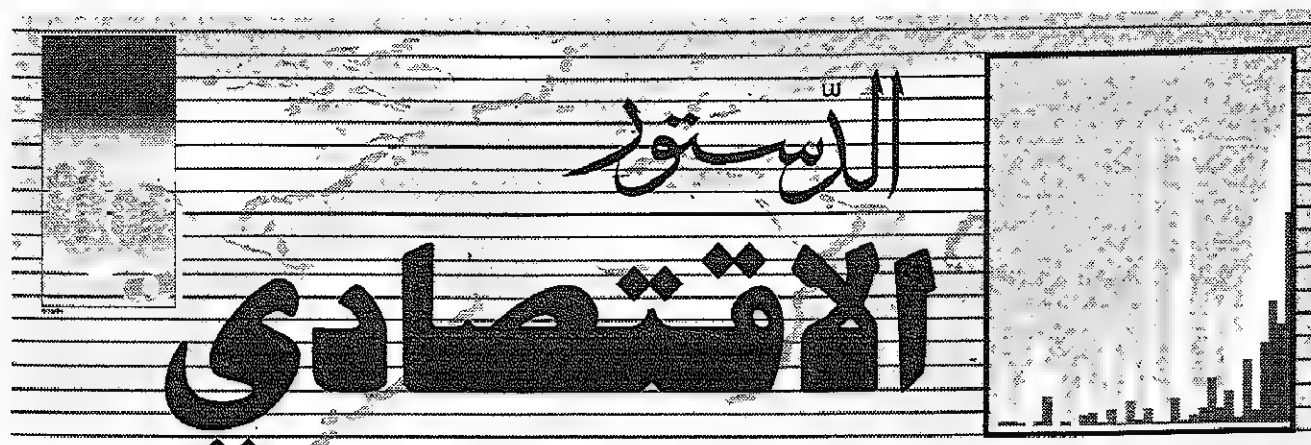 الدّستور
الاقتصادى